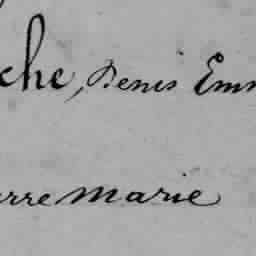 che, Denis Emm
erre Marie